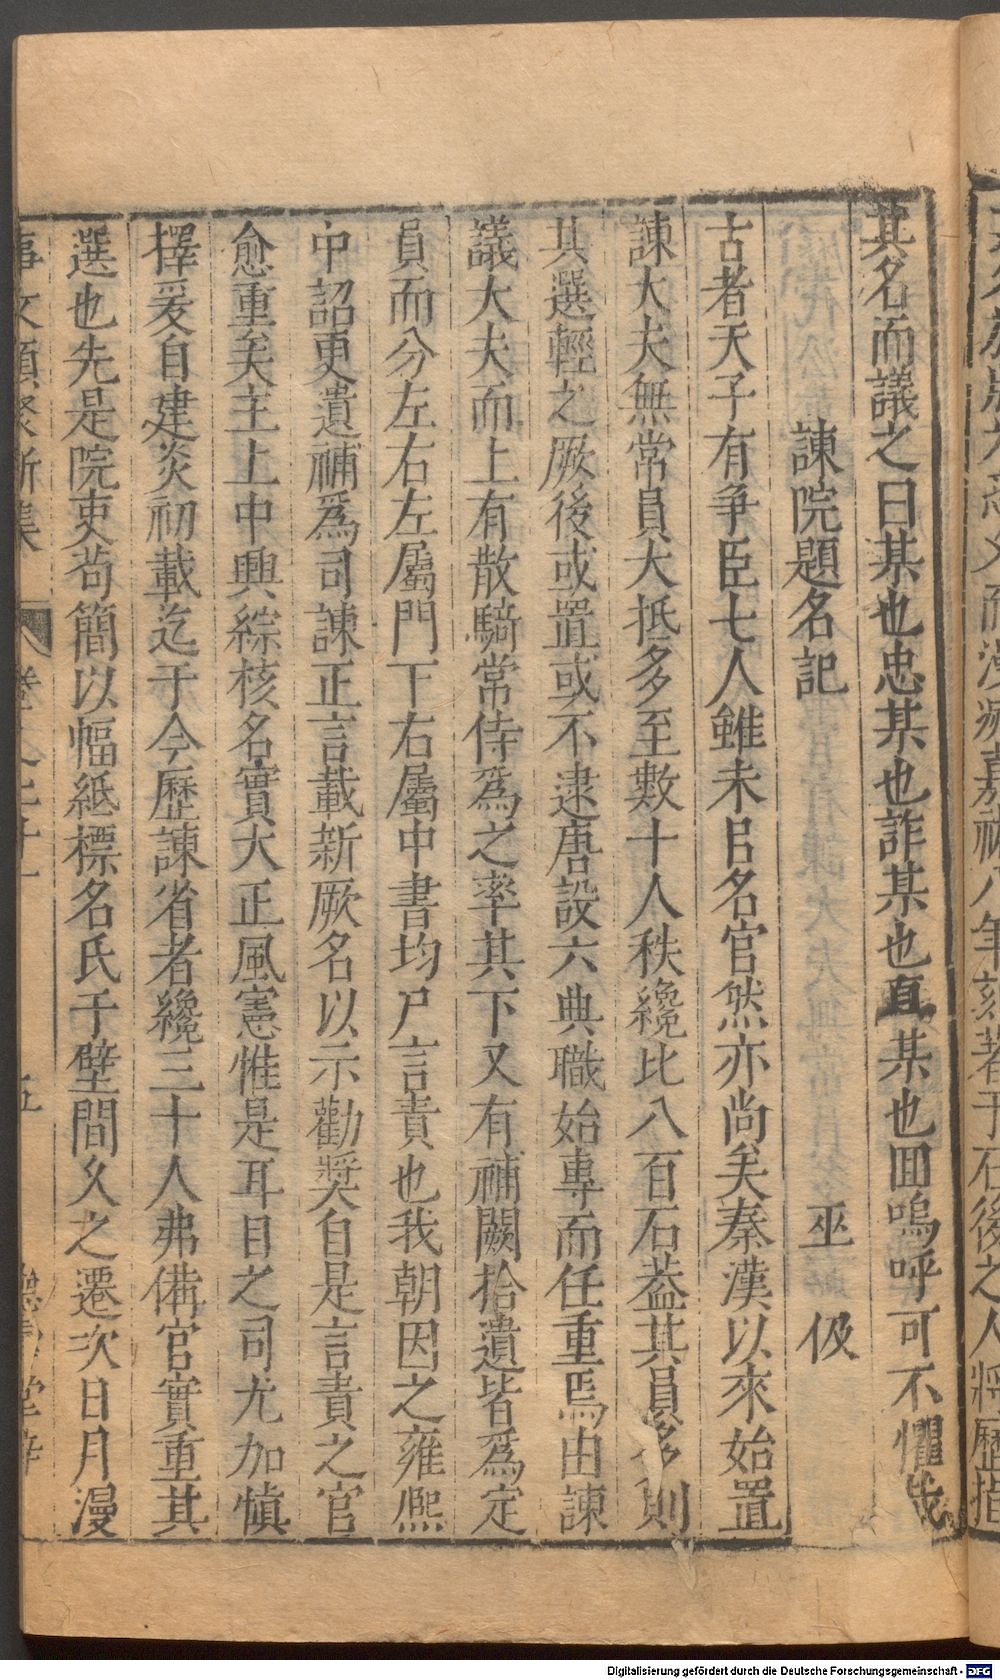 而漫
嘉祐八年刻著于石後之人將歷指
其名而議之曰某也忠某也詐某也直某也囬嗚呼可不懼哉
諫院題名記 巫伋
古者天子有爭臣七人雖未㠯名官然亦尚矣秦漢以來始置
諫大夫無常員大抵多至數十人秩纔比八百石葢其員多則
其選輕之厥後或置或不逮唐設六典職始專而任重焉由諫
議大夫而上有散騎常侍爲之率其下又有補闕拾遺皆爲定
員而分左右左屬門下右屬中書均尸言責也我朝因之雍熈
中詔更遺補爲司諫正言載新厥名以示勸奬自是言責之官
愈重矣主上中興綜核名實大正風憲惟是耳目之司尤加愼
擇爰自建炎初載迄于今歷諫省者纔三十人弗備官實重其
選也先是院吏苟簡以幅紙標名氏于壁間久之遷次日月漫
事文類聚新集 五
Digitalisierung gefördert durch die Deutsche Forschungsgemeinschaft - DFG